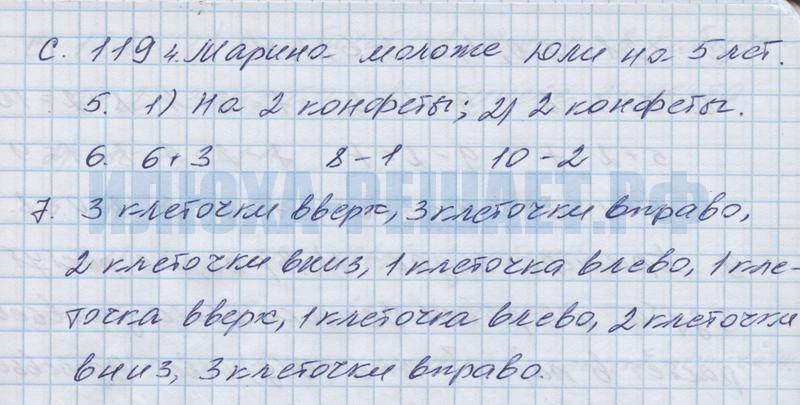 с. 119 4. Марина моложе Юли на 5 лет.
5. 1) На 2 конфеты; 2) 2 конфеты.
6. 6+3 8-1 10-2
ИЛЮХАРЕШАЕТ.РФ
7. 3 клеточки вверх, 3 клеточки вправо,
2 клеточки вниз, 1 клеточка влево, 1 кле-
точка вверх, 1 клеточка влево, 2 клеточки
вниз, 3 клеточки вправо.